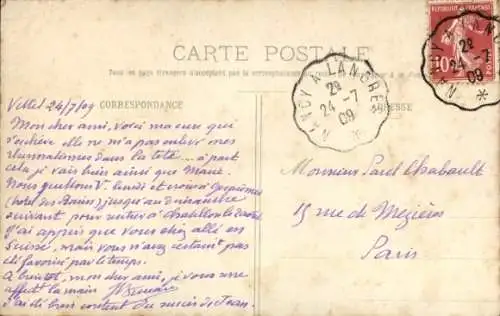 CARTE POSTALE
Tous les pays étrangers n'acceptent pas la correspondance
CORRESPONDANCE
ADRESSE
NANCY A LANGRES
2º
24 -7
09
RÉPUBLIQUE FRANÇAISE
10
NANCY A LAN
2º
24 -7
09
Vittel 24/7/09
Mon cher ami, voici ma cure qui
s'achève elle ne m'a pas enlevé mes
rhumatismes dans la tête ... à part
cela je vais bien ainsi que Marie.
Nous quittons V. lundi et irons à
(hôtel des Bains) jusqu'au dimanche
suivant pour rentrer à Chatillon le
J'ai appris que vous étiez allé en
Suisse, mais vous n'avez certaint pas
été favorisé par le temps.
A bientôt, mon cher ami, je vous serre
affectt la main
J'ai été bien content du succès de Jean.
Monsieur Paul Chabault
15 rue de Mézières
Paris